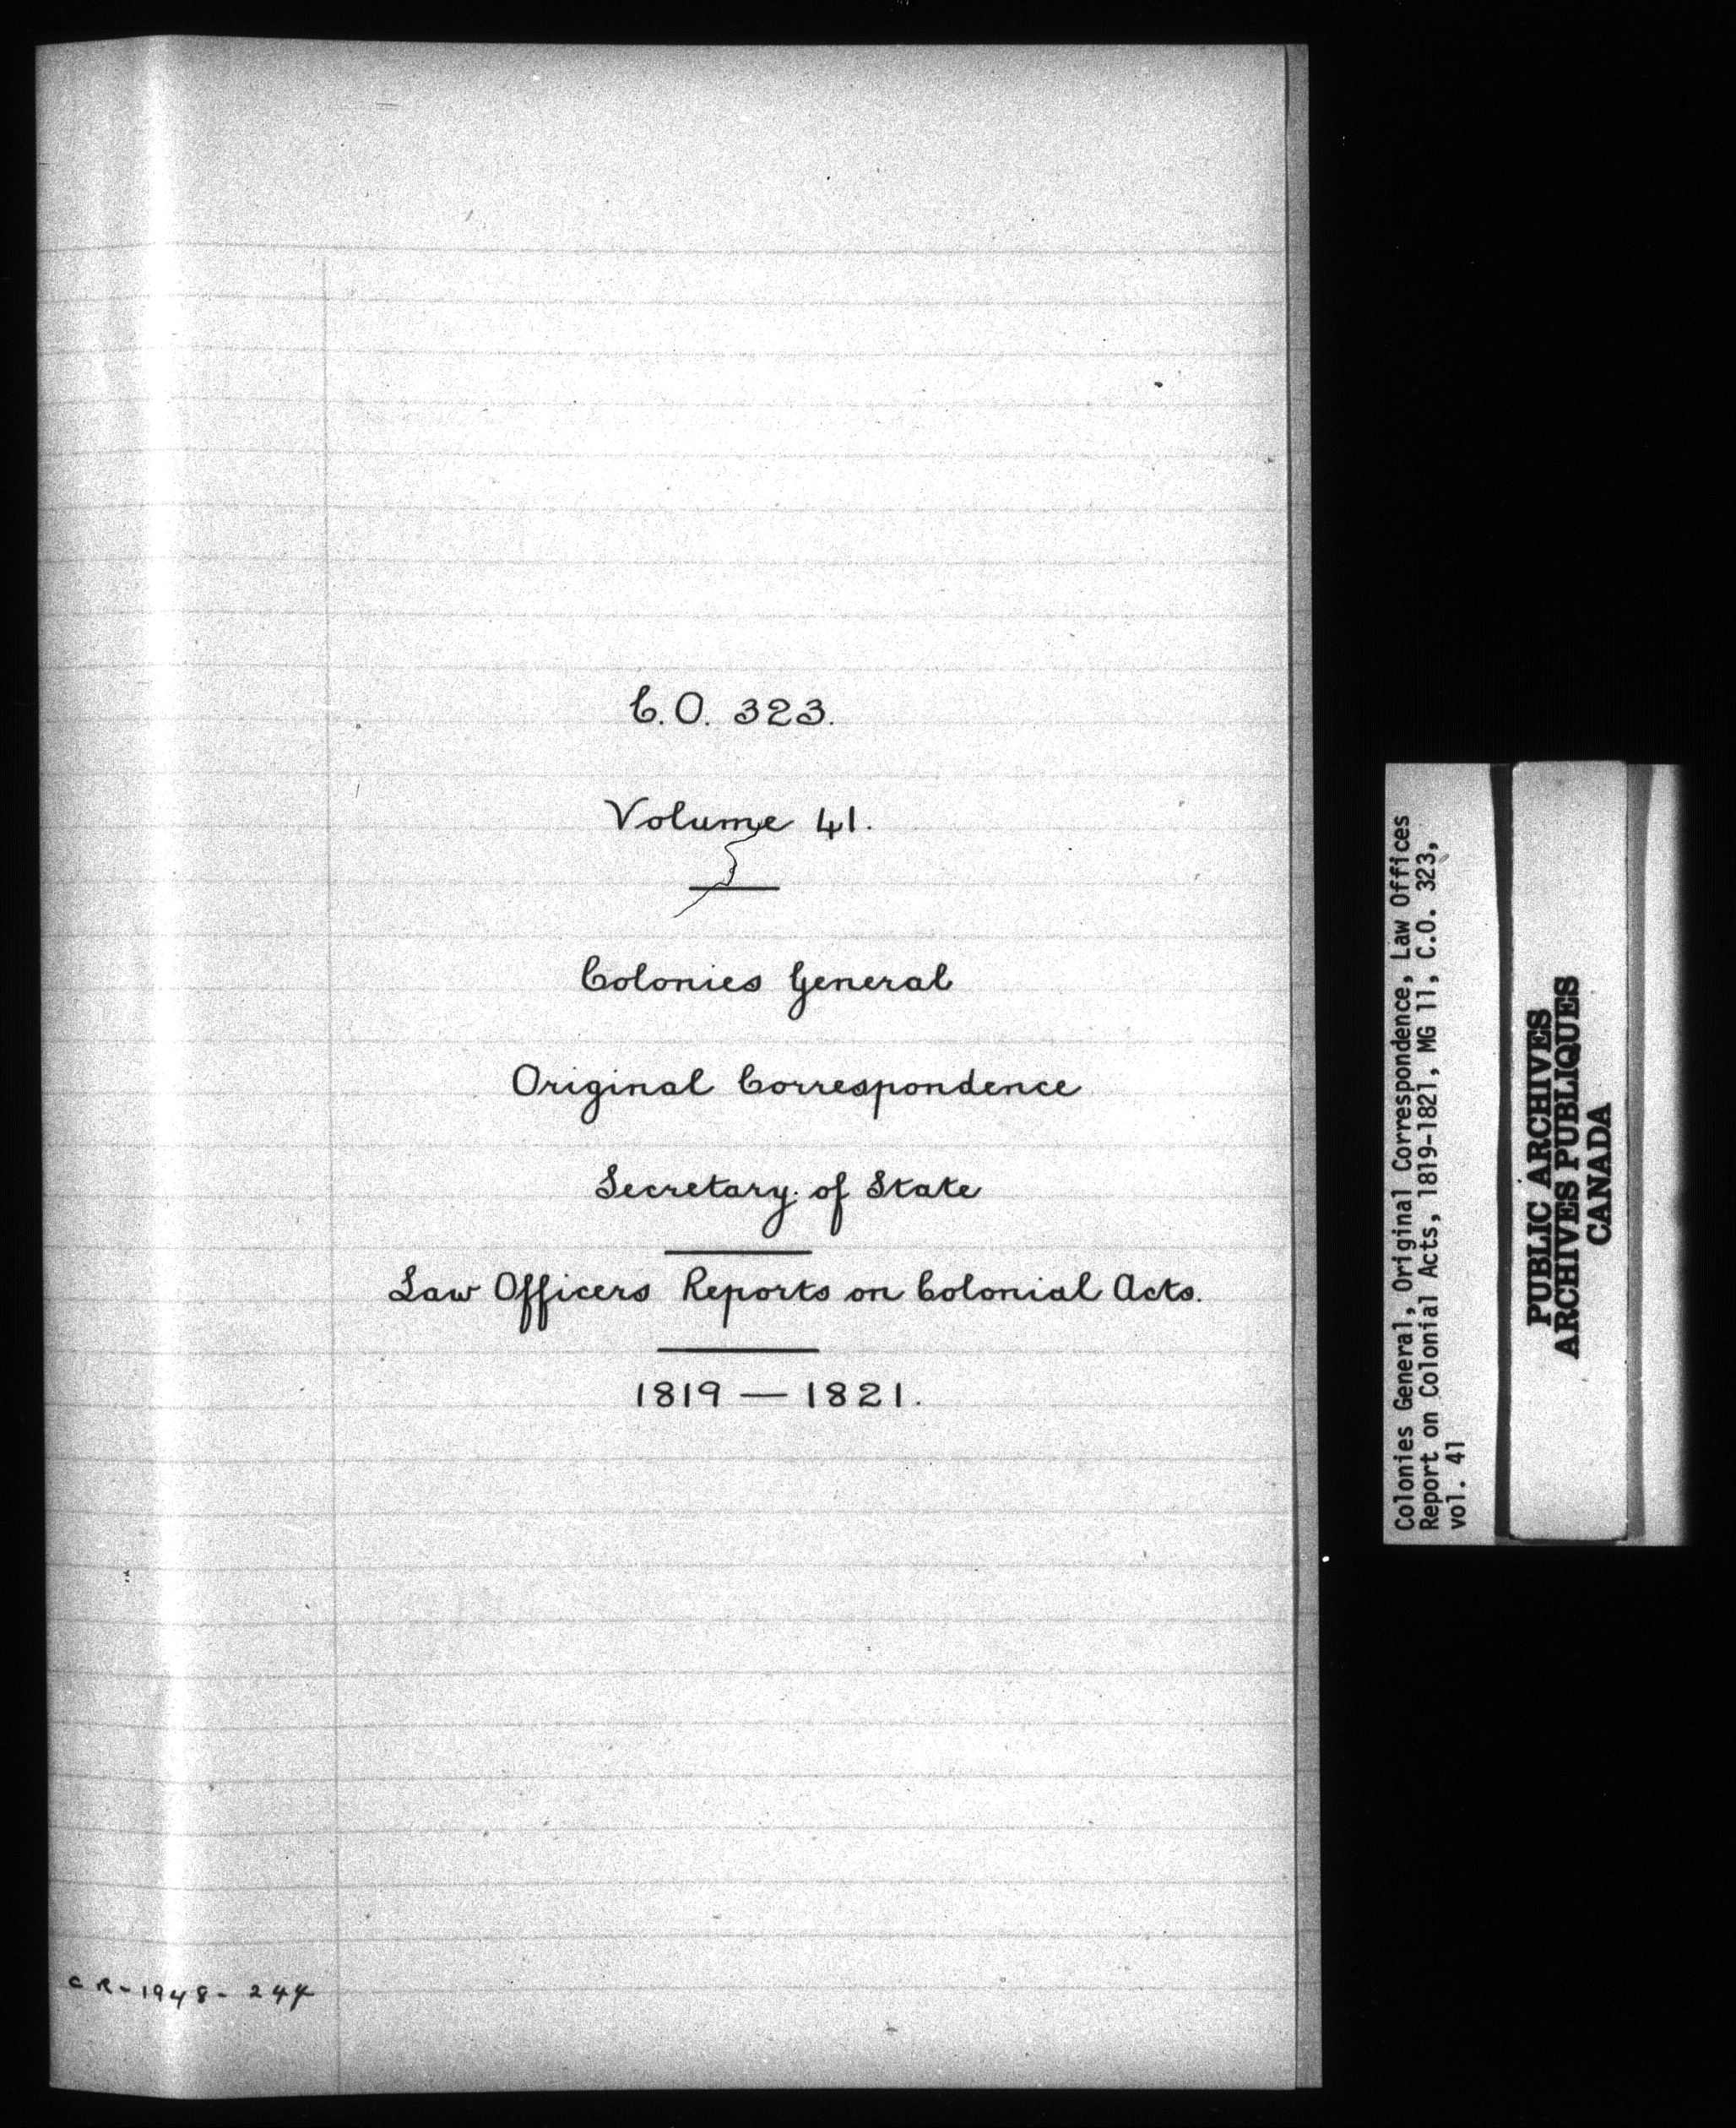 C.O. 323.
Volume 41.
Colonies General
Original Correspondence
Secretary of State
Law Officers Reports on Colonial Acts.
1819 — 1821.
CR-1948-244
Colonies General, Original Correspondence, Law Offices
Report on Colonial Acts, 1819-1821, MG 11, C.O. 323,
vol. 41
PUBLIC ARCHIVES
ARCHIVES PUBLIQUES
CANADA